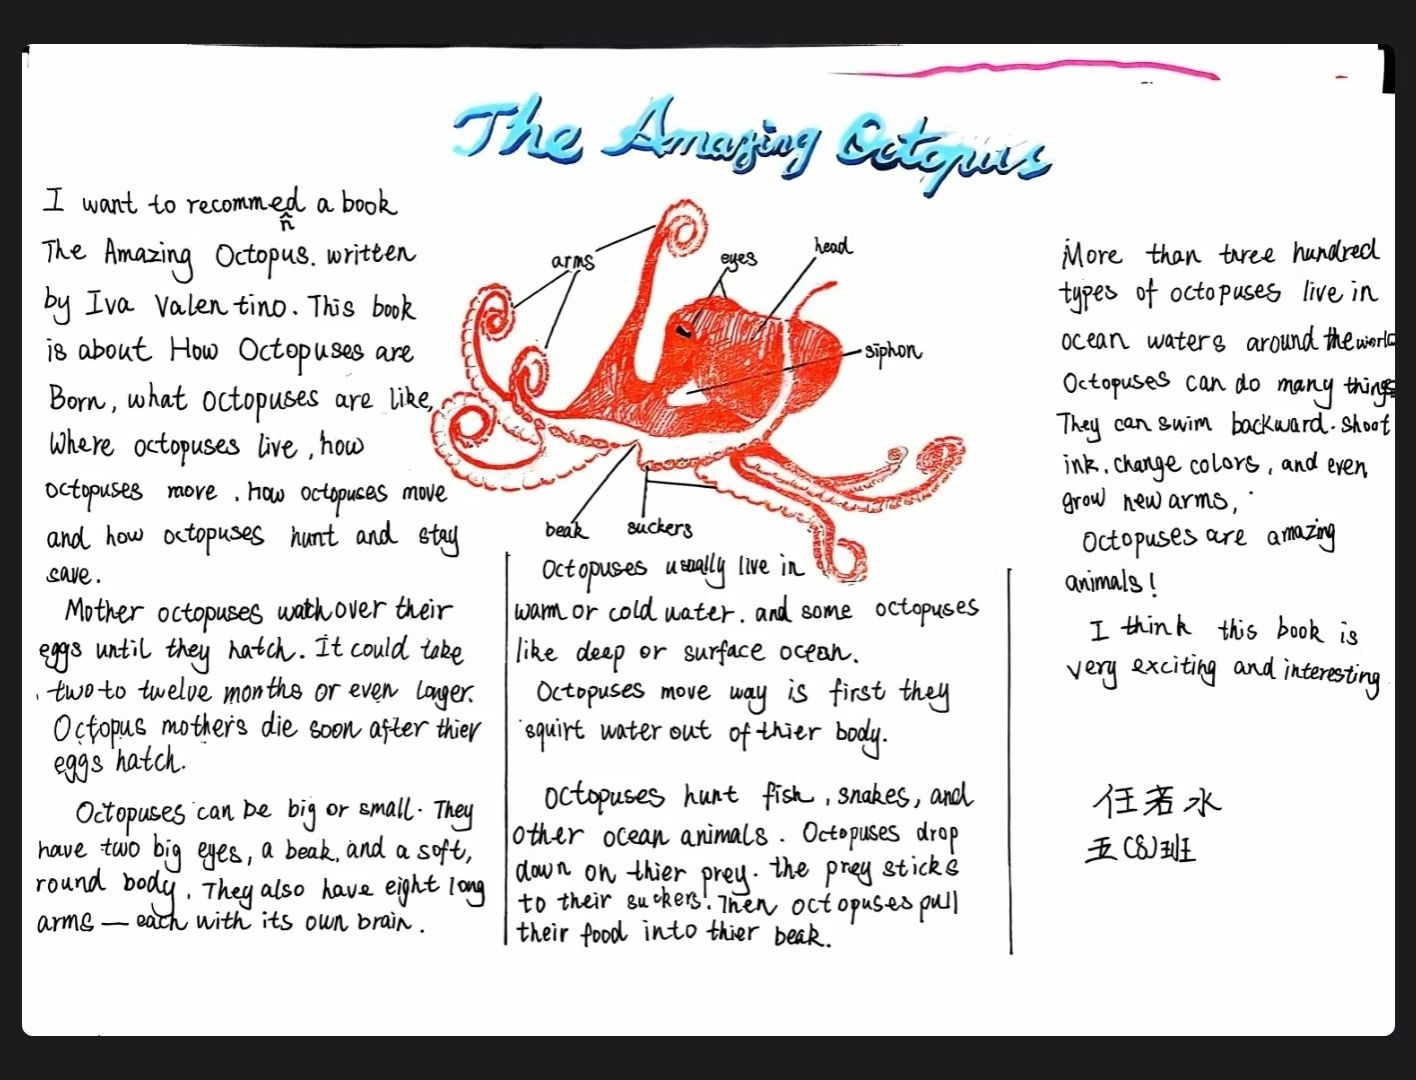 The Amazing Octopus
I want to recommend a book
The Amazing Octopus. written
by Iva Valentino. This book
is about How Octopuses are
Born, what octopuses are like,
Where octopuses live, how
octopuses move, how octopuses move
and how octopuses hunt and stay
save.
Mother octopuses watch over their
eggs until they hatch. It could take
two to twelve months or even longer.
Octopus mothers die soon after thier
eggs hatch.
Octopuses can be big or small. They
have two big eyes, a beak, and a soft,
round body. They also have eight long
arms — each with its own brain.
arms
eyes
head
siphon
beak
suckers
Octopuses usually live in
warm or cold water. and some octopuses
like deep or surface ocean.
Octopuses move way is first they
squirt water out of thier body.
Octopuses hunt fish, snakes, and
other ocean animals. Octopuses drop
down on thier prey. the prey sticks
to their suckers. Then octopuses pull
their food into thier beak.
More than three hundred
types of octopuses live in
ocean waters around the world
Octopuses can do many things
They can swim backward. shoot
ink, change colors, and even
grow new arms,
Octopuses are amazing
animals!
I think this book is
very exciting and interesting
任若水
五(8)班